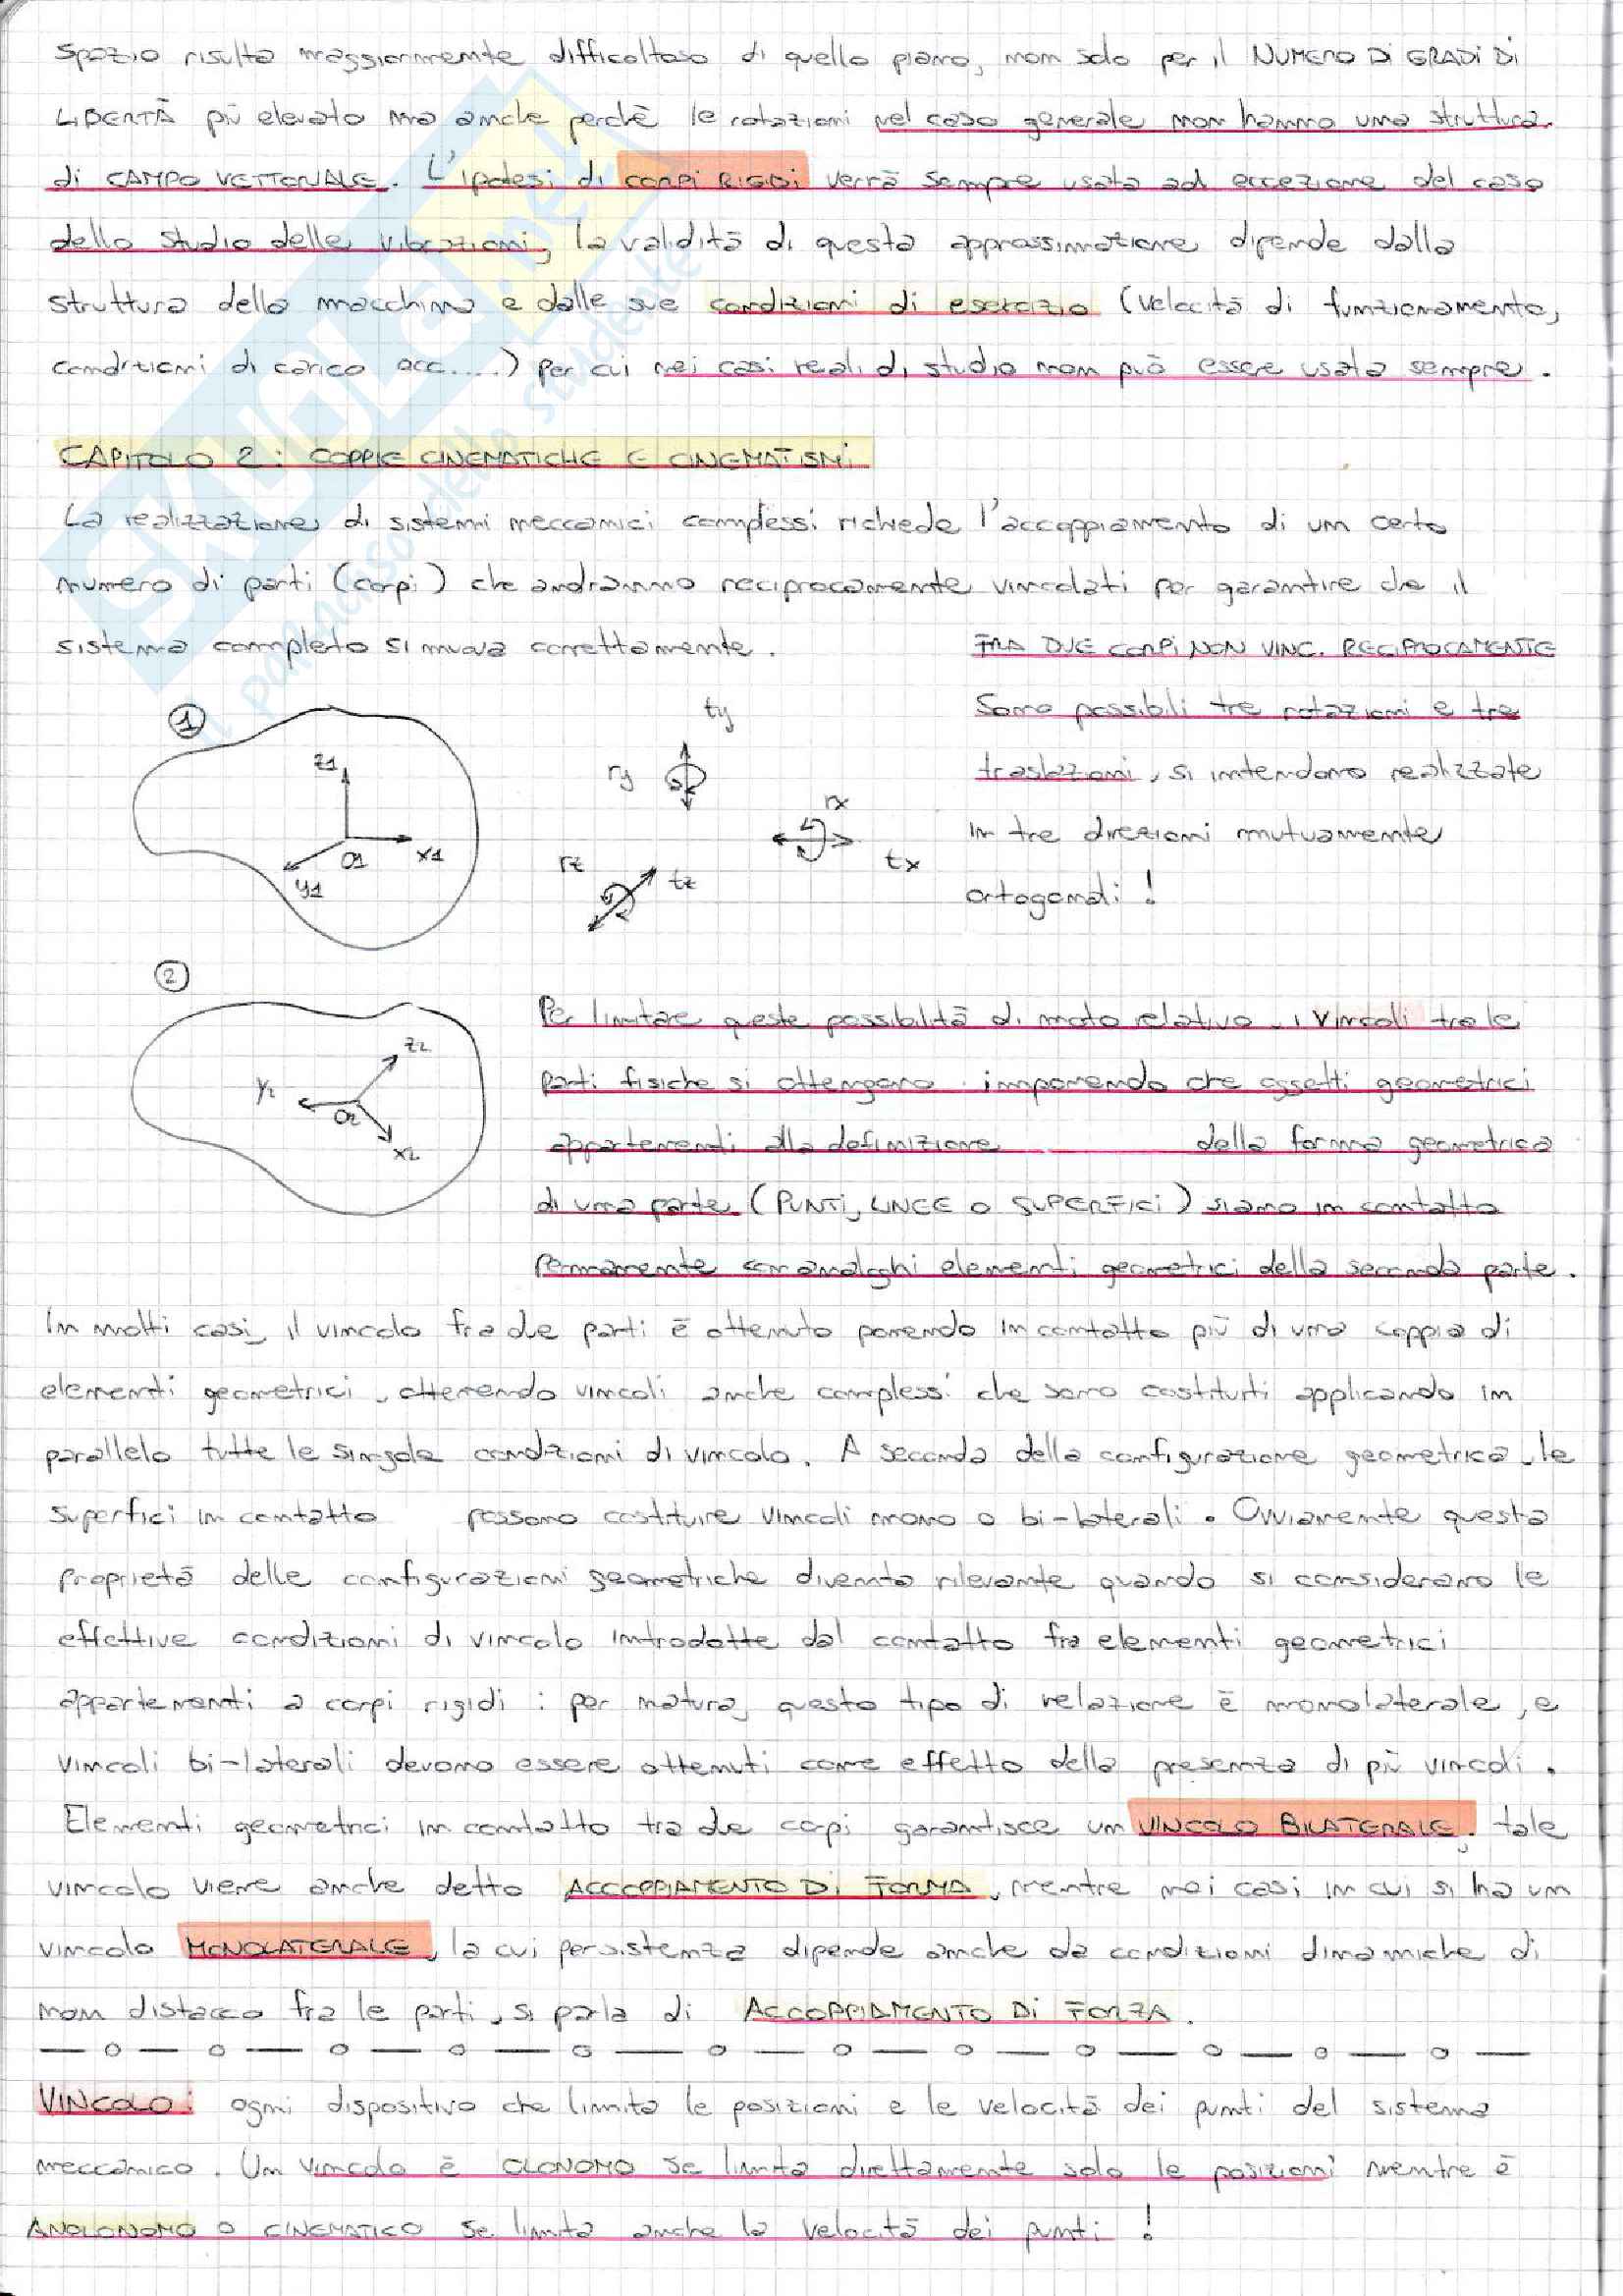 Spazio risulta maggiormente difficoltoso di quello piano, non solo per il NUMERO DI GRADI DI
LIBERTÀ più elevato ma anche perchè le rotazioni nel caso generale non hanno una struttura
di CAMPO VETTORIALE. L'ipotesi di CORPI RIGIDI verrà sempre usata ad eccezione del caso
dello studio delle vibrazioni, la validità di questa approssimazione dipende dalla
struttura della macchina e dalle sue condizioni di esercizio (velocità di funzionamento,
condizioni di carico ecc....) per cui nei casi reali di studio non può essere usata sempre.
CAPITOLO 2: COPPIE CINEMATICHE E CINEMATISMI
La realizzazione di sistemi meccanici complessi richiede l'accoppiamento di un certo
numero di parti (corpi) che andranno reciprocamente vincolati per garantire che il
sistema completo si muova correttamente.
FRA DUE CORPI NON VINC. RECIPROCAMENTE
Sono possibili tre rotazioni e tre
traslazioni, si intendono realizzate
in tre direzioni mutuamente
ortogonali!
1
z1
O1
x1
y1
ty
ry
rx
tx
rz
tz
2
z2
y2
O2
x2
Per limitare queste possibilità di moto relativo, i vincoli tra le
parti fisiche si ottengono imponendo che assetti geometrici
appartenenti alla definizione della forma geometrica
di una parte (PUNTI, LINEE O SUPERFICI) siano in contatto
permanente con analoghi elementi geometrici della seconda parte.
In molti casi, il vincolo fra due parti è ottenuto ponendo in contatto più di una coppia di
elementi geometrici, ottenendo vincoli anche complessi che sono costituiti applicando in
parallelo tutte le singole condizioni di vincolo. A seconda della configurazione geometrica, le
superfici in contatto possono costituire vincoli mono o bi-laterali. Ovviamente questa
proprietà delle configurazioni geometriche diventa rilevante quando si considerano le
effettive condizioni di vincolo introdotte dal contatto fra elementi geometrici
appartenenti a corpi rigidi: per natura, questo tipo di relazione è monolaterale, e
vincoli bi-laterali devono essere ottenuti come effetto della presenza di più vincoli.
Elementi geometrici in contatto tra due corpi garantisce un VINCOLO BILATERALE, tale
vincolo viene anche detto ACCOPPIAMENTO DI FORMA, mentre nei casi in cui si ha un
vincolo MONOLATERALE, la cui persistenza dipende anche da condizioni dinamiche di
non distacco fra le parti, si parla di ACCOPPIAMENTO DI FORZA.
VINCOLO: ogni dispositivo che limita le posizioni e le velocità dei punti del sistema
meccanico. Un vincolo è OLONOMO se limita direttamente solo le posizioni mentre è
ANOLONOMO O CINEMATICO se limita anche la velocità dei punti!
SKUOLA.net
il paradiso dello studente